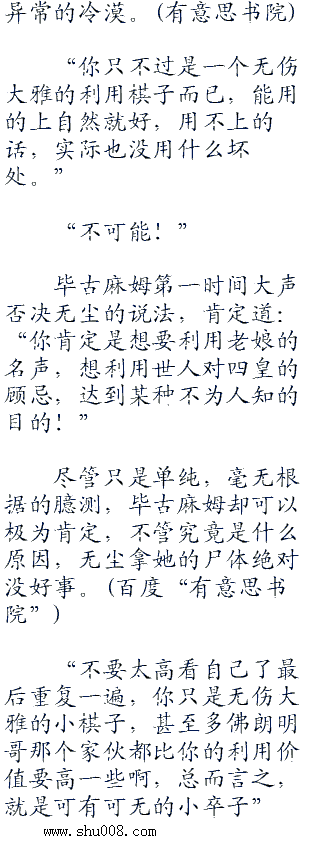 异常的冷漠。(有意思书院)
“你只不过是一个无伤
大雅的利用棋子而已，能用
的上自然就好，用不上的
话，实际也没用什么坏
处。”
“不可能！”
毕古麻姆第一时间大声
否决无尘的说法，肯定道：
“你肯定是想要利用老娘的
名声，想利用世人对四皇的
顾忌，达到某种不为人知的
目的！”
尽管只是单纯，毫无根
据的臆测，毕古麻姆却可以
极为肯定，不管究竟是什么
原因，无尘拿她的尸体绝对
没好事。(百度“有意思书
院”)
“不要太高看自己了最
后重复一遍，你只是无伤大
雅的小棋子，甚至多佛朗明
哥那个家伙都比你的利用价
值要高一些啊，总而言之，
就是可有可无的小卒子”
www.shu008.com